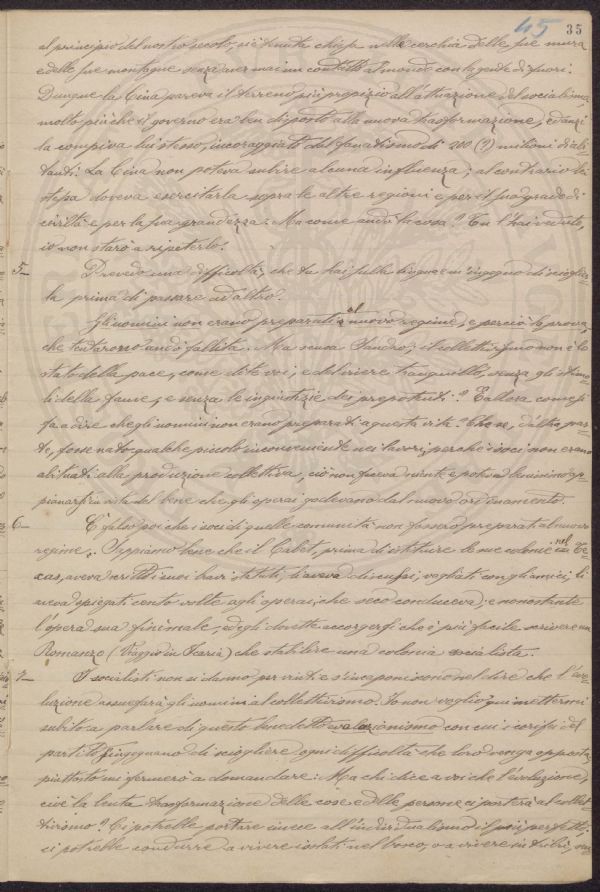 45 35
al principio del nostro secolo, si è tenuta chiusa nella cerchia delle sue mura
e delle sue montagne senza aver mai un contatto al mondo con la gente di fuori.
Dunque la Cina pareva il terreno più propizio all'attuazione del socialismo,
molto più che il governo era ben disposto alla nuova trasformazione, ed anzi
la compiva lui stesso, incoraggiato dal fanatismo di 200 (?) milioni d'abi-
tanti. La Cina non poteva subire alcuna influenza; al contrario lei
stessa doveva esercitarla sopra le altre regioni e per il suo grado di
civiltà e per la sua grandezza. Ma come andò la cosa? Tu l'hai veduto,
io non starò a ripeterlo.
5— Prevedo una difficoltà, che tu hai sulla lingua e m'ingegno di scioglier-
la prima di passare ad altro.
Gli uomini non erano preparati al nuovo regime, e perciò la prova,
che tentarono andò fallita. Ma scusa Sandro; il collettivismo non è lo
stato della pace, come dite voi, e del vivere tranquilli, senza gli stimo-
li della fame, e senza le ingiustizie dei prepotenti? E allora come si
fa a dire che gli uomini non erano preparati a questa vita? Che se, d'altra par-
te, fosse nato qualche piccolo inconveniente nei lavori, perchè i soci non erano
abituati alla produzione collettiva, ciò non faceva niente e poteva benissimo ap-
pianarsi in vista del bene che gli operai godevano dal nuovo ordinamento.
6— È falso poi che i soci di quelle comunità non fossero preparati al nuovo
regime. Sappiamo bene che il Cabet, prima d'istituire le sue colonie nel Te-
xas, aveva scritti i suoi bravi statuti, li aveva discussi, vagliati con gli amici, li
aveva spiegati cento volte agli operai, che seco conduceva; e nonostante
l'opera sua finì male, ed egli dovette accorgersi che è più facile scrivere un
Romanzo (Viaggio in Icaria) che stabilire una colonia socialista.
7— I socialisti non si danno per vinti e s'incaponiscono nel dire che l'evo-
luzione assuefarà gli uomini al collettivismo. Io non voglio qui mettermi
subito a parlare di questo benedetto evoluzionismo con cui i corifei del
partito s'ingegnano di sciogliere ogni difficoltà che loro venga opposta;
piuttosto mi fermerò a domandare: Ma chi dice a voi che l'evoluzione,
cioè la lenta trasformazione delle cose e delle persone ci porterà al collet-
tivismo? Ci potrebbe portare invece all'individualismo il più perfetto;
ci potrebbe condurre a vivere isolati nel bosco, o a vivere in tribù,